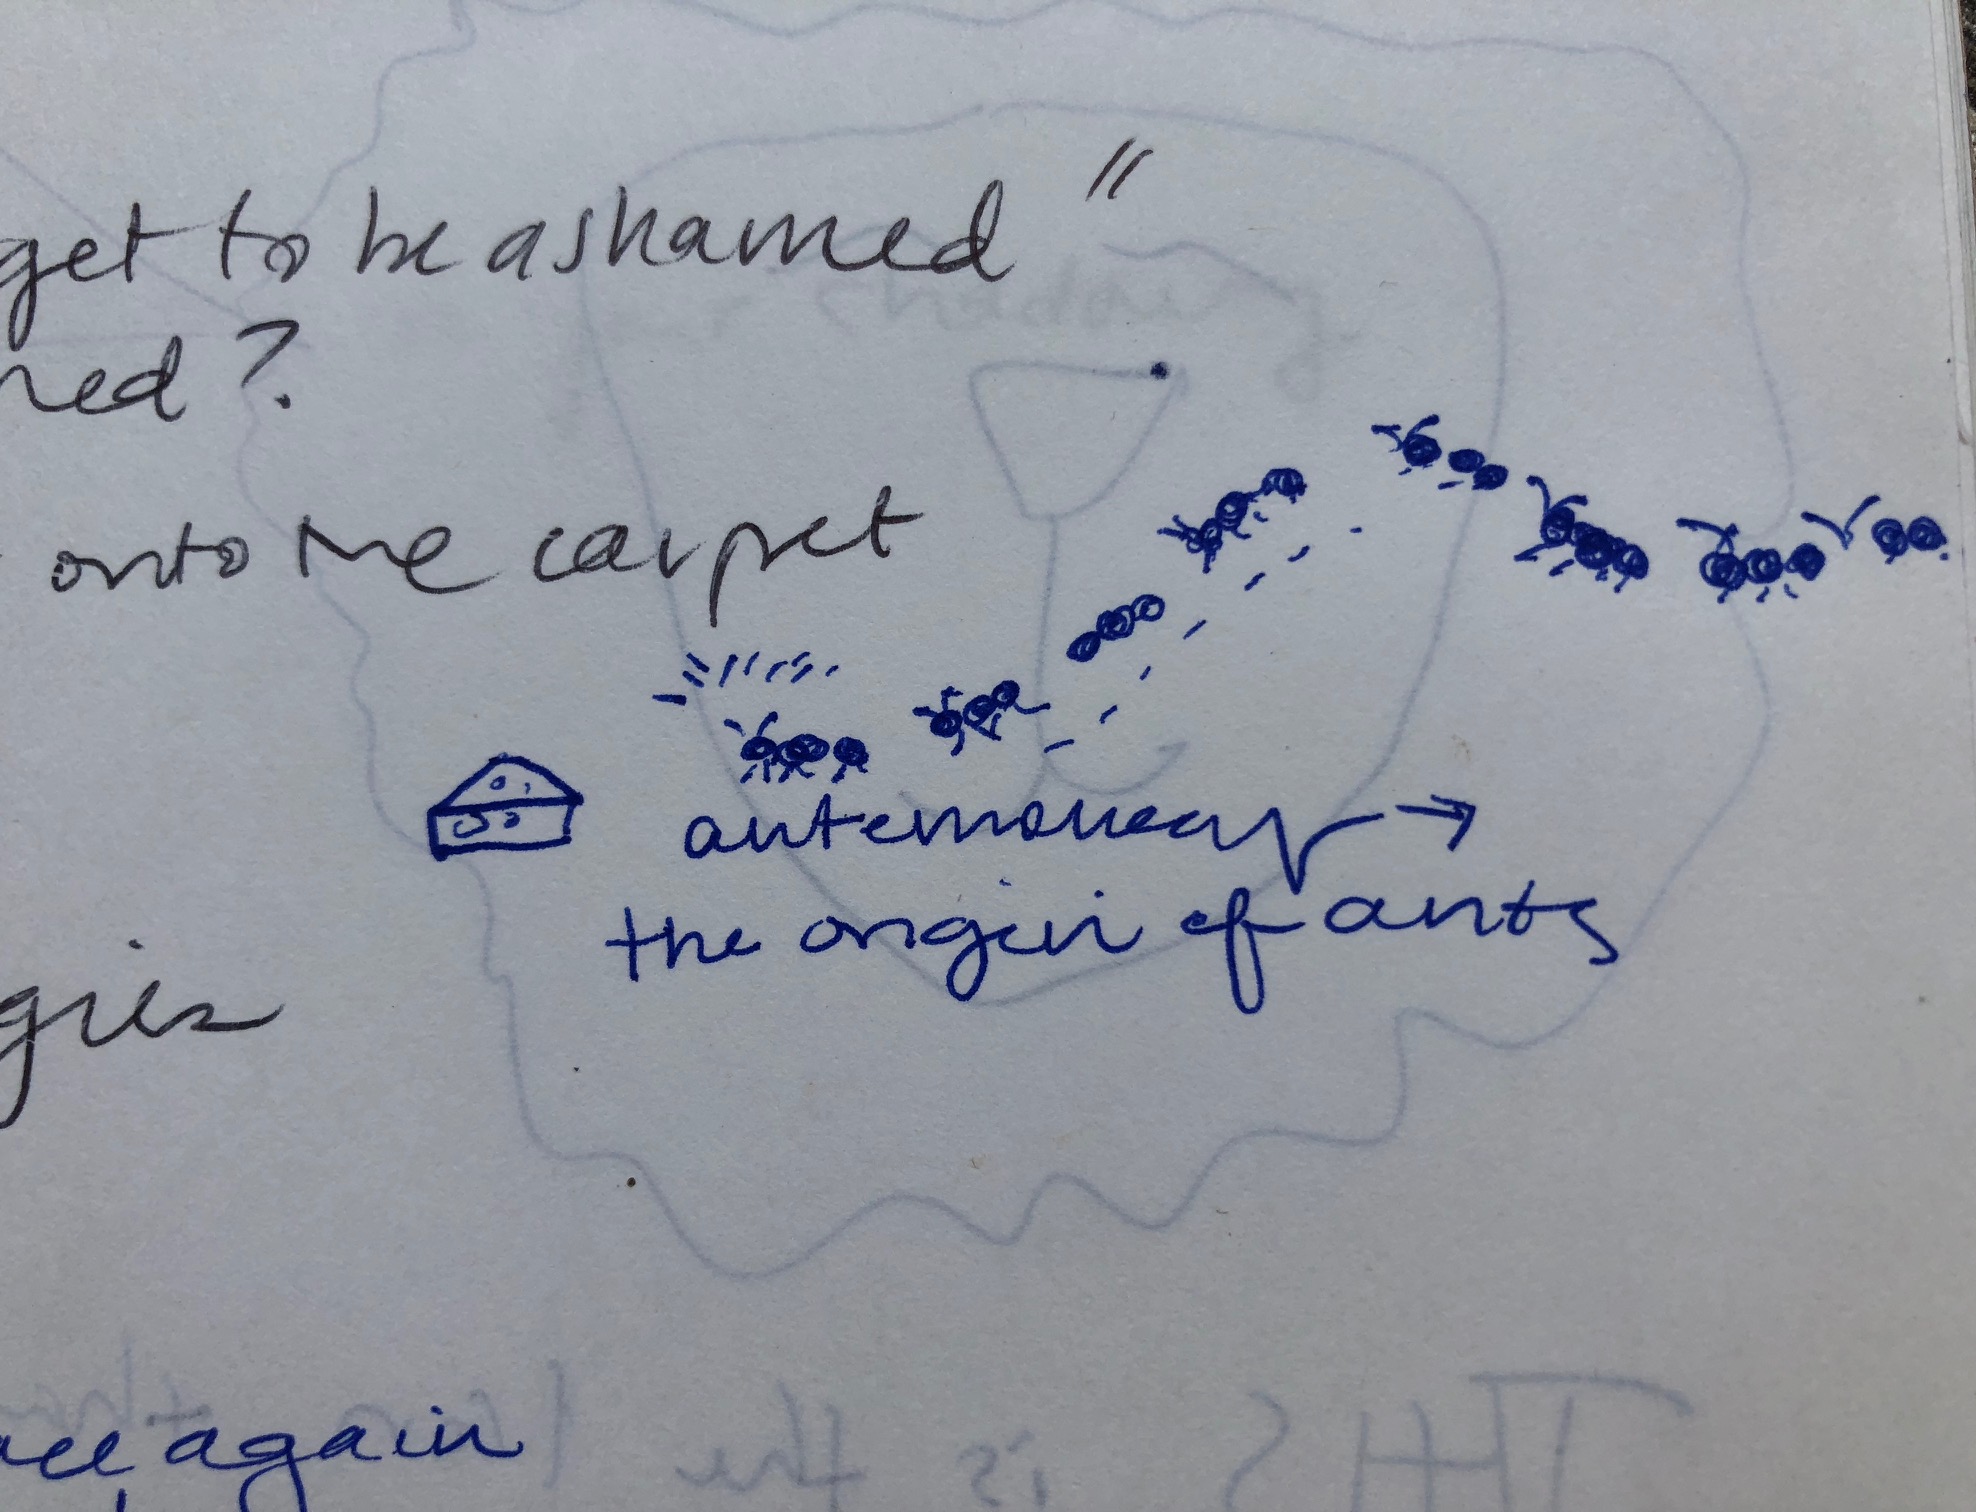 get to be ashamed"
ned?
onto the carpet
antemoneay →
the origin of ants
gies
again
THIS is the